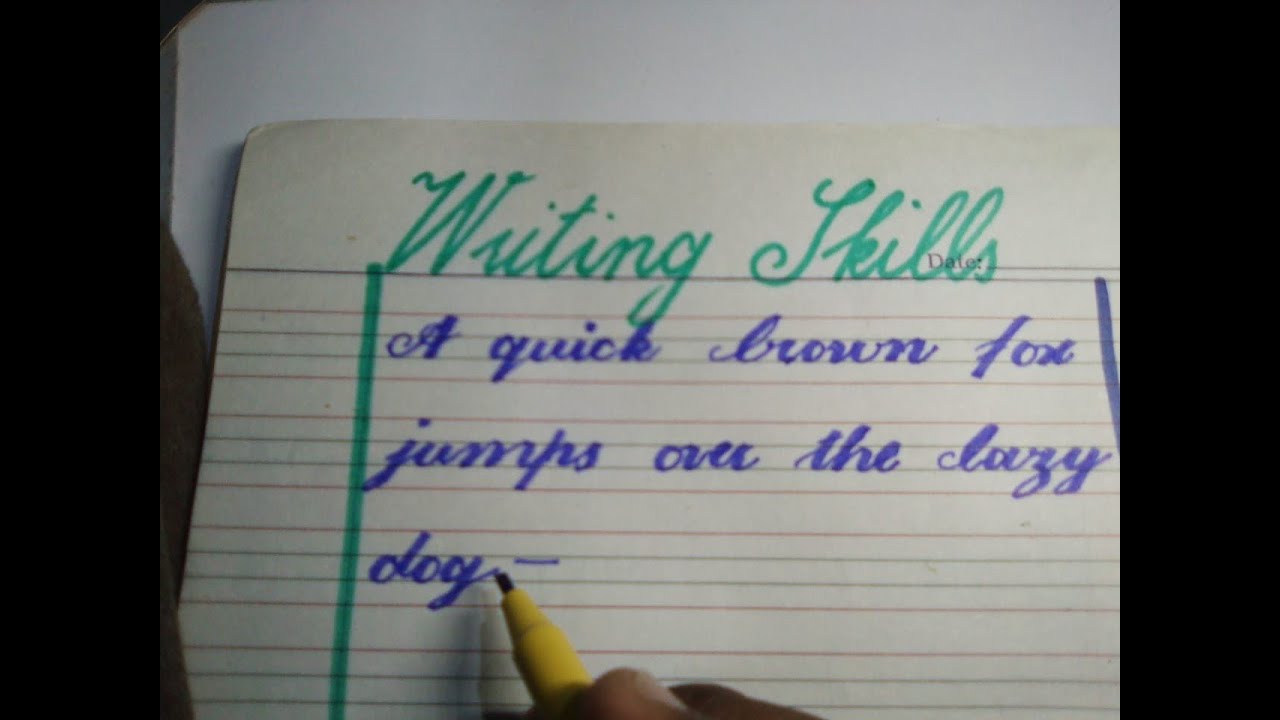 Writing Skills
Date:
A quick brown fox
jumps over the lazy
dog.-